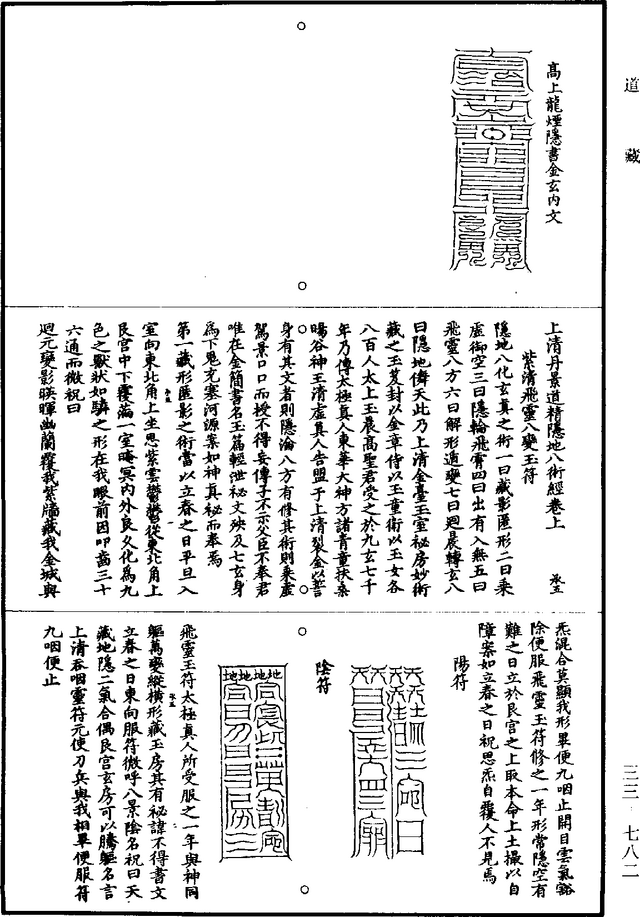 道藏
高上龍煙隱書金玄內文
上清丹景道精隱地八術經卷上
承五
紫清飛靈八變玉符
隱地八化玄真之術一曰藏影匿形二曰乘
虛御空三曰隱輪飛霄四曰出有入無五曰
飛靈八方六曰解形遁變七曰迴晨轉玄八
曰隱地儛天此乃上清金臺玉室秘房妙術
藏之玉笈封以金章侍以玉童衛以玉女各
八百人太上玉晨高聖君受之於九玄七千
年乃傳太極真人東華大神方諸青童扶桑
暘谷神王清虛真人告盟于上清裂金以誓
身有其文者則隱淪八方有修其術則乘虛
駕景口口而授不得妄傳子不示父臣不奉君
唯在金簡書名玉篇輕泄秘文殃及七玄身
為下鬼充塞河源案如神真秘而奉焉
第一藏形匿影之術當以立春之日平旦入
室向東北角上坐思紫雲鬱鬱從東北角上
艮宮中下覆滿一室晻冥內外良久化為九
色之獸狀如驎之形在我眼前因叩齒三十
六通而微祝曰
迴元變影晱暉幽蘭覆我紫牆藏我金城與
炁混合莫顯我形畢便九咽止開目雲氣豁
除便服飛靈玉符修之一年形常隱空有
難之日立於艮宮之上取本命上土撮以自
障案如立春之日祝思炁自覆人不見焉
陽符
陰符
飛靈玉符太極真人所受服之一年與神同
軀萬變縱橫形藏玉房其有秘諱不得書文
立春之日東向服符微呼八景陰名祝曰天
藏地隱二氣合偶艮宮玄房可以騰軀名言
上清吞咽靈符元使刀兵與我相畢便服符
九咽便止
三三·七八二